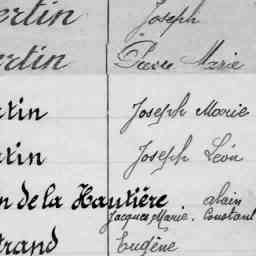 ertin Joseph
ertin Pierre Marie
rtin Joseph Marie
rtin Joseph Léon
n de la Hautière. alain
Jacques Marie. Constant
trand Eugène